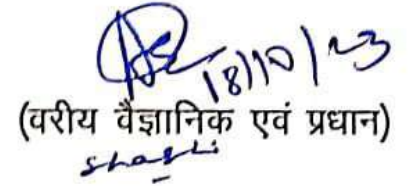 18/10/23
(वरीय वैज्ञानिक एवं प्रधान)